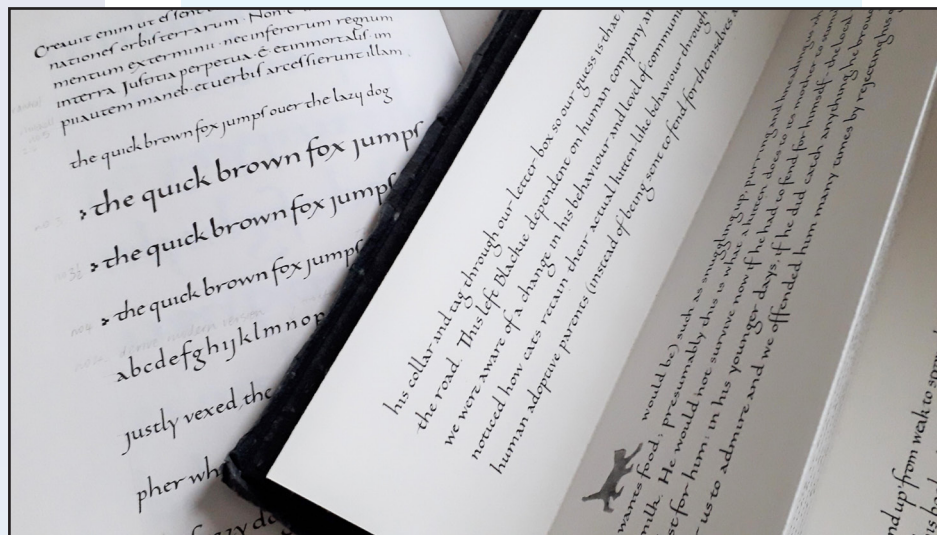 Creavit enim ut eſſent
nationeſ orbiſ terrarum · Non e
mentum exterminii · nec inferorum regnum
interra Juſtitia perpetua · É · et inmortaliſ · im
piiautem manib · et verbiſ arceſſierunt illam
the quick brown fox jumpſ over the lazy dog
the quick brown fox jumpſ
the quick brown fox jumpſ
the quick brown fox jumpſ
abcdefghijklmnop
justly vexed, the
pher wh
his collar and tag through our letter box so our guess is that
the road. This left Blackie dependent on human company an
we were aware of a change in his behaviour and level of communi
noticed how cats retain their actual kitten-like behaviour through
human adoptive parents (instead of being sent to fend for themselves
would be) such as snuggling up, purring and kneading
wants food; presumably this is what a kitten does to its mother to
milk. He would not survive now if he had to fend for himself - the
st for him; in his younger days, if he did catch anything he brou
us to admire and we offended him many times by rejecting his
nd up from weak to